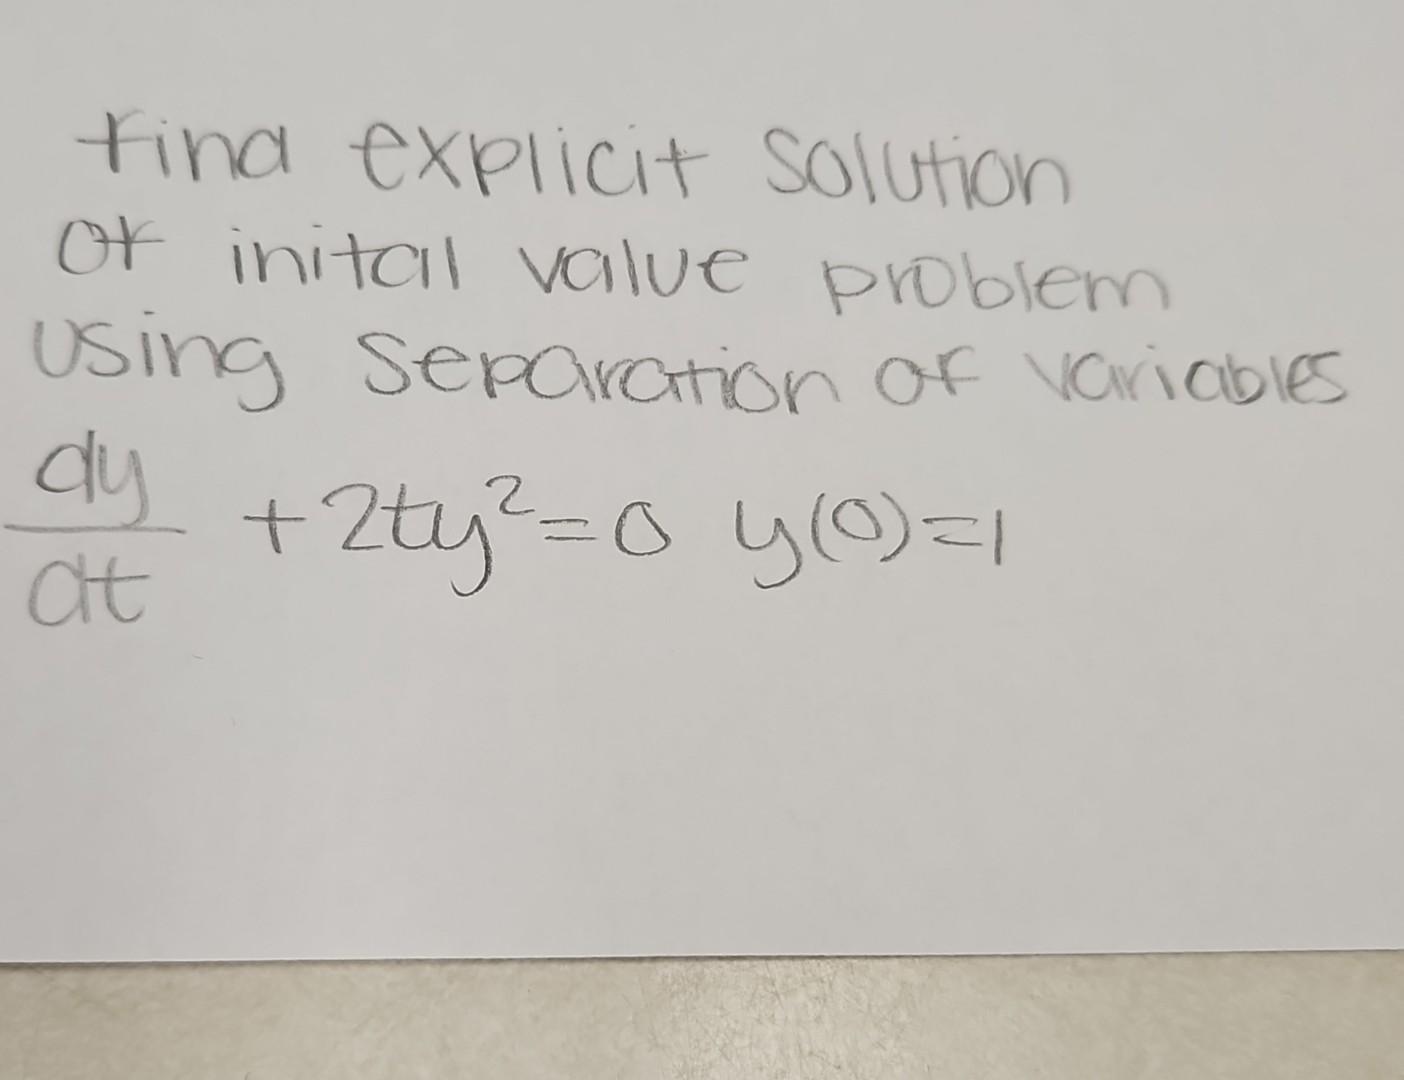 find explicit solution
of inital value problem
using separation of variables
dy/dt + 2ty²=0 y(0)=1